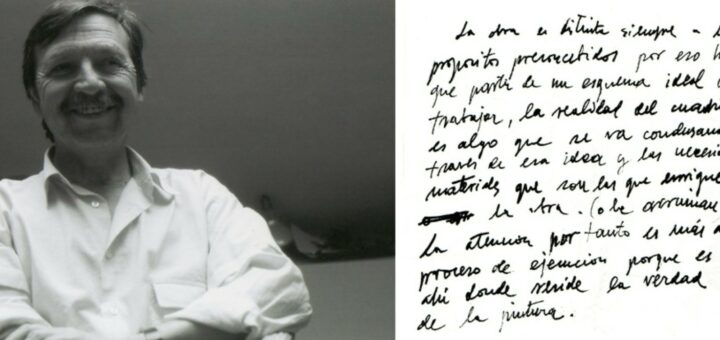 La obra es distinta siempre a
propositos preconcebidos por eso
que partir de un esquema ideal
trabajar, la realidad del
es algo que se va
traves de esa idea y las
materiales que son las que
la obra. (o be
La atencion por tanto es más
proceso de ejecucion porque es
ahi donde reside la verdad
de la pintura.